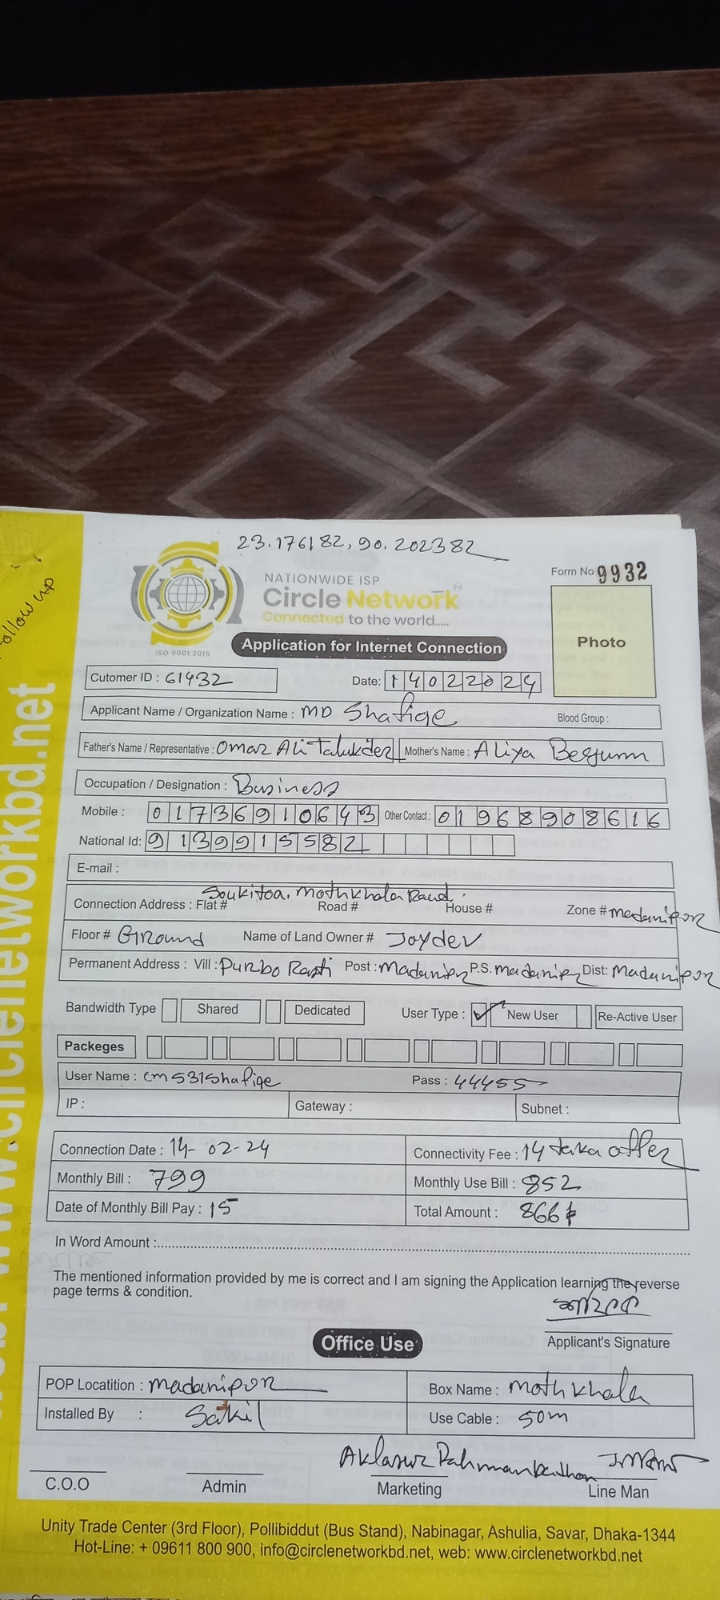 follow up
www.circlenetworkbd.net
23.176182, 90.202382
NATIONWIDE ISP
Circle Network
Connected to the world.....
ISO 9001:2015
Form No 9932
Photo
Application for Internet Connection
Cutomer ID : 61432
Date: 14022024
Applicant Name / Organization Name : MD Shafiqe
Blood Group :
Father's Name / Representative : Omar Ali Talukder Mother's Name : Aliya Begum
Occupation / Designation : Business
Mobile : 01736910643 Other Contact : 01968908616
National Id: 9139915582
E-mail :
Mothkhala Road
Connection Address : Flat # Road # House # Zone # madaripor
Floor # Ground Name of Land Owner # Joydev
Permanent Address : Vill : Purbo Post : Madaripor P.S. madaripor Dist: Madaripor
Bandwidth Type Shared Dedicated User Type : ✓ New User Re-Active User
Packeges
User Name : cm531shafiqe Pass : 44455
IP : Gateway : Subnet :
Connection Date : 14-02-24 Connectivity Fee : 14 taka offer
Monthly Bill : 799 Monthly Use Bill : 852
Date of Monthly Bill Pay : 15 Total Amount : 866
In Word Amount :
The mentioned information provided by me is correct and I am signing the Application learning the reverse
page terms & condition.
Applicant's Signature
Office Use
POP Locatition : madaripor Box Name : mothkhala
Installed By : Sakil Use Cable : 50m
C.O.O Admin Marketing Line Man
Unity Trade Center (3rd Floor), Pollibiddut (Bus Stand), Nabinagar, Ashulia, Savar, Dhaka-1344
Hot-Line: + 09611 800 900, info@circlenetworkbd.net, web: www.circlenetworkbd.net